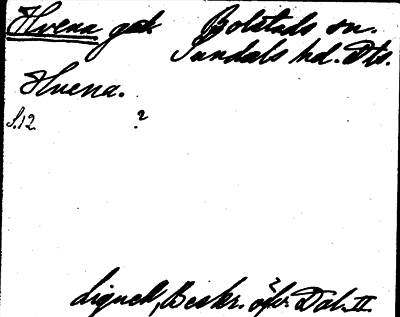 Hvena gd. Bolstads sn.
Sundals hd. Dls.
Hvena.
S. 12. ?
Lignell, Beskr. öfv. Dal. II.